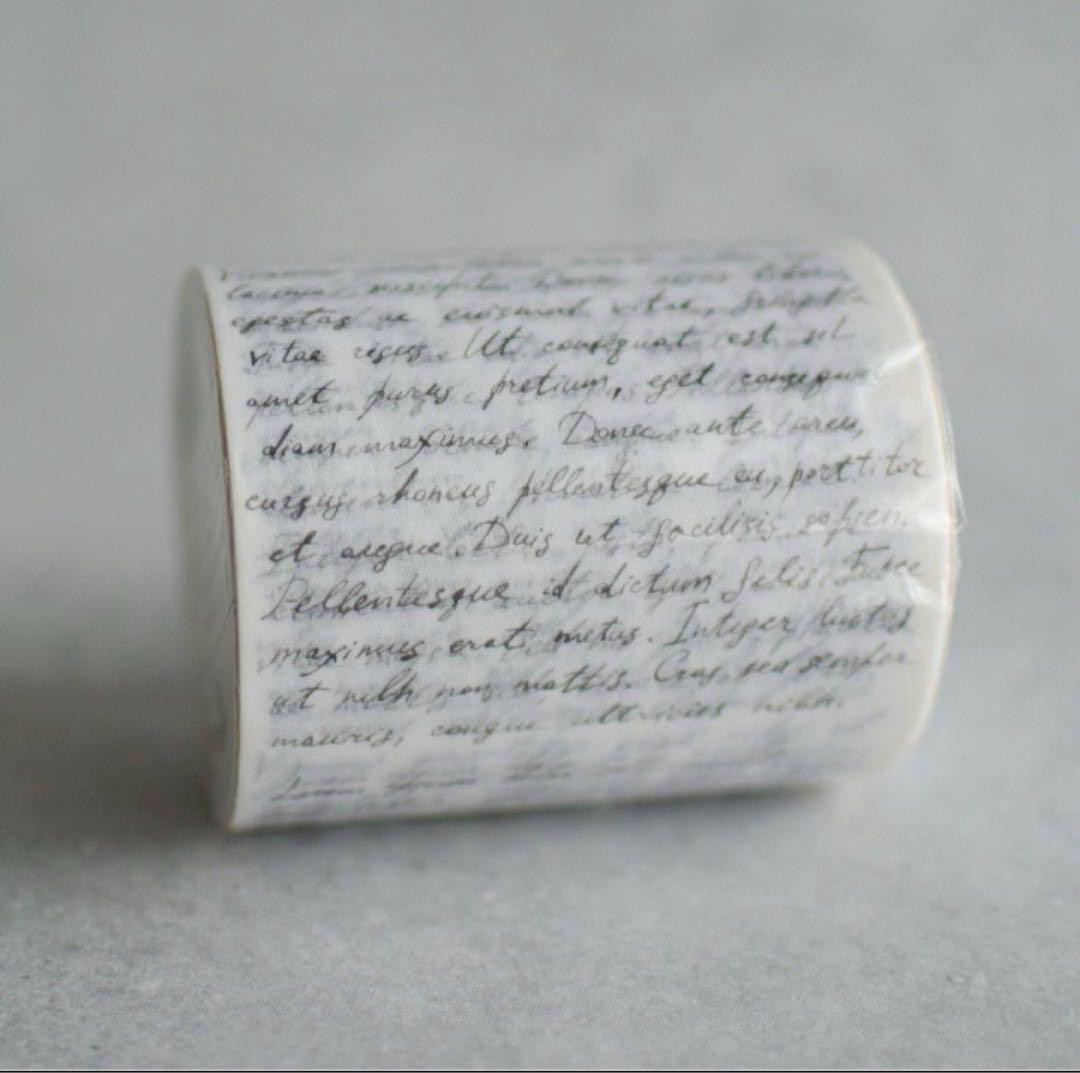 vitae risus. Ut consequat est sit
amet purus pretium, eget consequat
diam maximus. Donec ante arcu,
cursus rhoncus pellentesque eu, porttitor
et augue. Duis ut facilisis sapien.
Pellentesque id dictum felis. Fusce
maximus erat metus. Integer luctus
ut nibh non mattis. Cras sed semper
mauris, congue ultricies nibh.